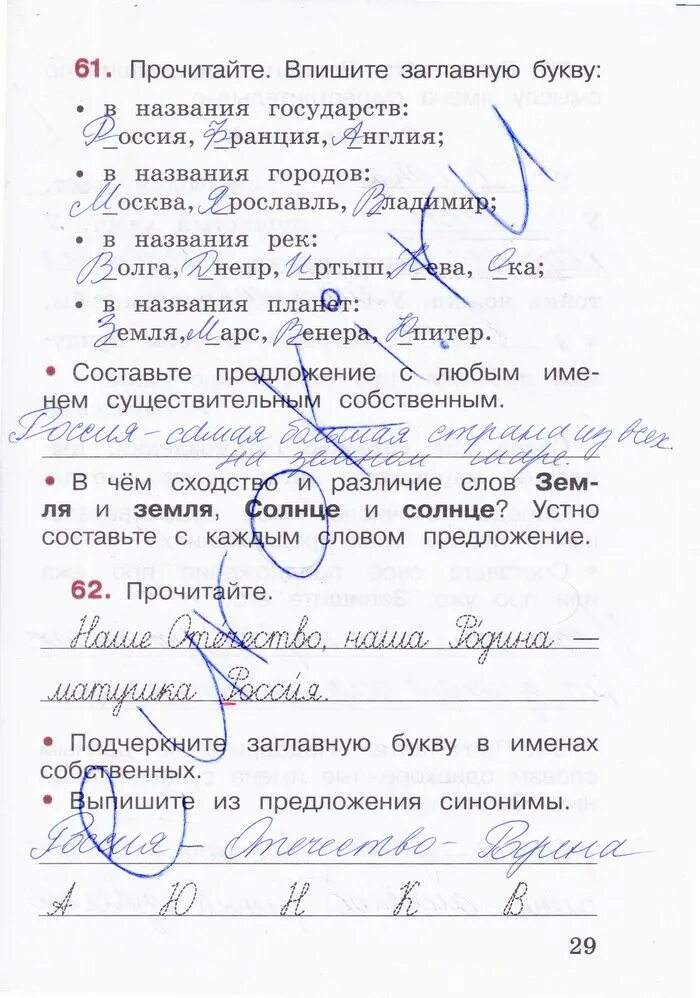 61. Прочитайте. Впишите заглавную букву:
• в названия государств:
Россия, Франция, Англия;
• в названия городов:
Москва, Ярославль, Владимир;
• в названия рек:
Волга, Днепр, Иртыш, Нева, Ока;
• в названия планет:
Земля, Марс, Венера, Юпитер.
• Составьте предложение с любым име-
нем существительным собственным.
Россия - самая большая страна из всех
на земном шаре.
• В чём сходство и различие слов Зем-
ля и земля, Солнце и солнце? Устно
составьте с каждым словом предложение.
62. Прочитайте.
Наше Отечество, наша Ро́дина —
матушка Росси́я.
• Подчеркните заглавную букву в именах
собственных.
• Выпишите из предложения синонимы.
Россия - Отечество - Родина
А Ю Н К В
29